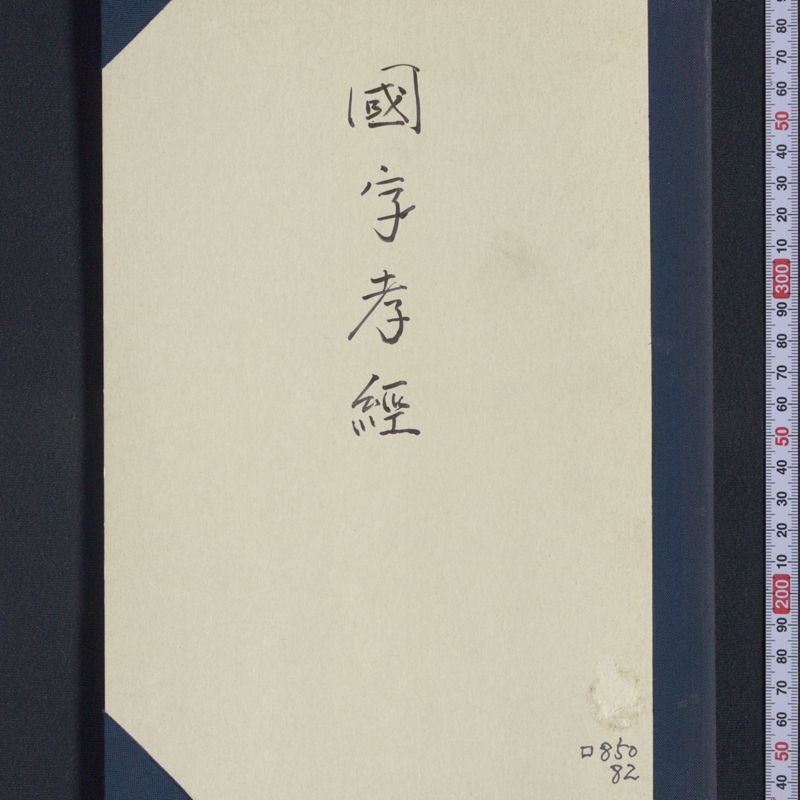 國字孝經
ロ850
82
80
70
60
50
40
30
20
10
300
90
80
70
60
50
40
30
20
10
200
90
80
70
60
50
40